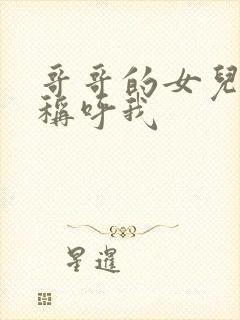 哥哥的女兒
稱呼我
星暹